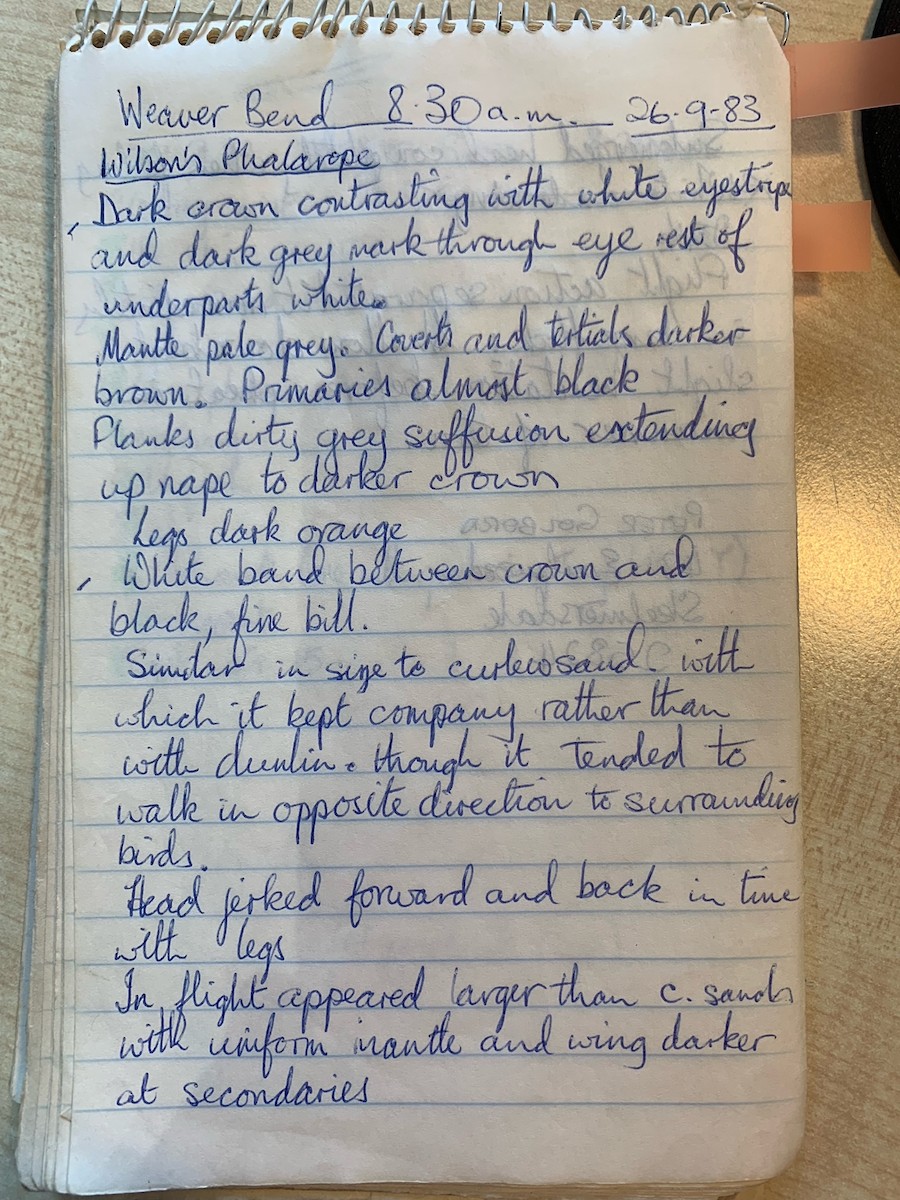 Weaver Bend 8.30a.m. 26.9.83
Wilson's Phalarope
Dark crown contrasting with white eyestripe
and dark grey mark through eye rest of
underparts white.
Mantle pale grey. Coverts and tertials darker
brown. Primaries almost black
Flanks dirty grey suffusion extending
up nape to darker crown
Legs dark orange
White band between crown and
black, fine bill.
Similar in size to curlew sand. with
which it kept company rather than
with dunlin. though it tended to
walk in opposite direction to surrounding
birds.
Head jerked forward and back in time
with legs
In flight appeared larger than c. sands
with uniform mantle and wing darker
at secondaries